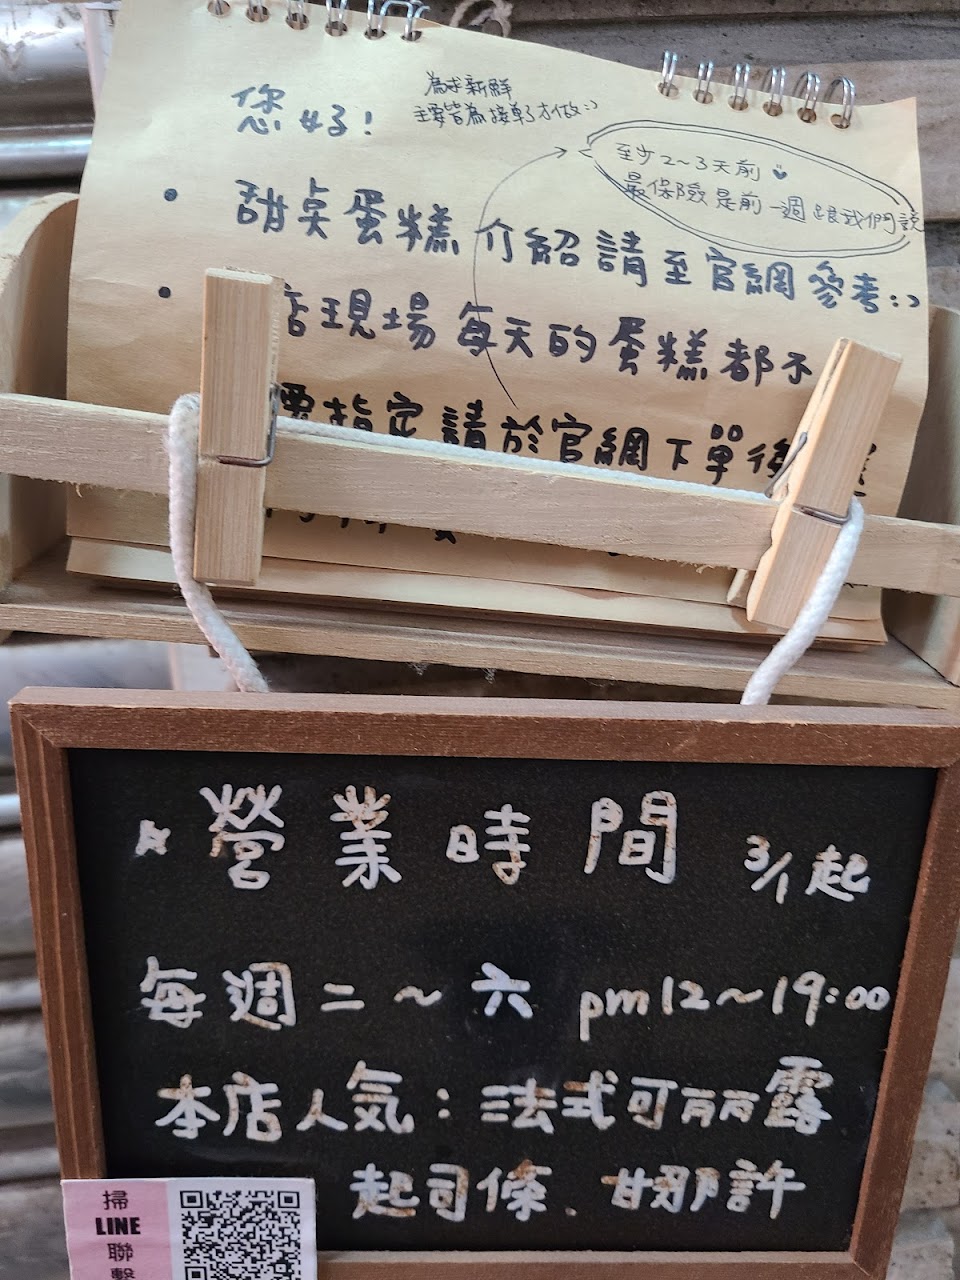 您好!
為求新鮮
主要皆為接單了才做:)
至少2~3天前
最保險是前一週跟我們說
• 甜点蛋糕介紹請至官網參考:)
• 店現場每天的蛋糕都不
要指定請於官網下單後
營業時間 3/1起
每週二~六 pm12~19:00
本店人氣:法式可丽丽露
起司條、甘那許
掃
LINE
聯
繫